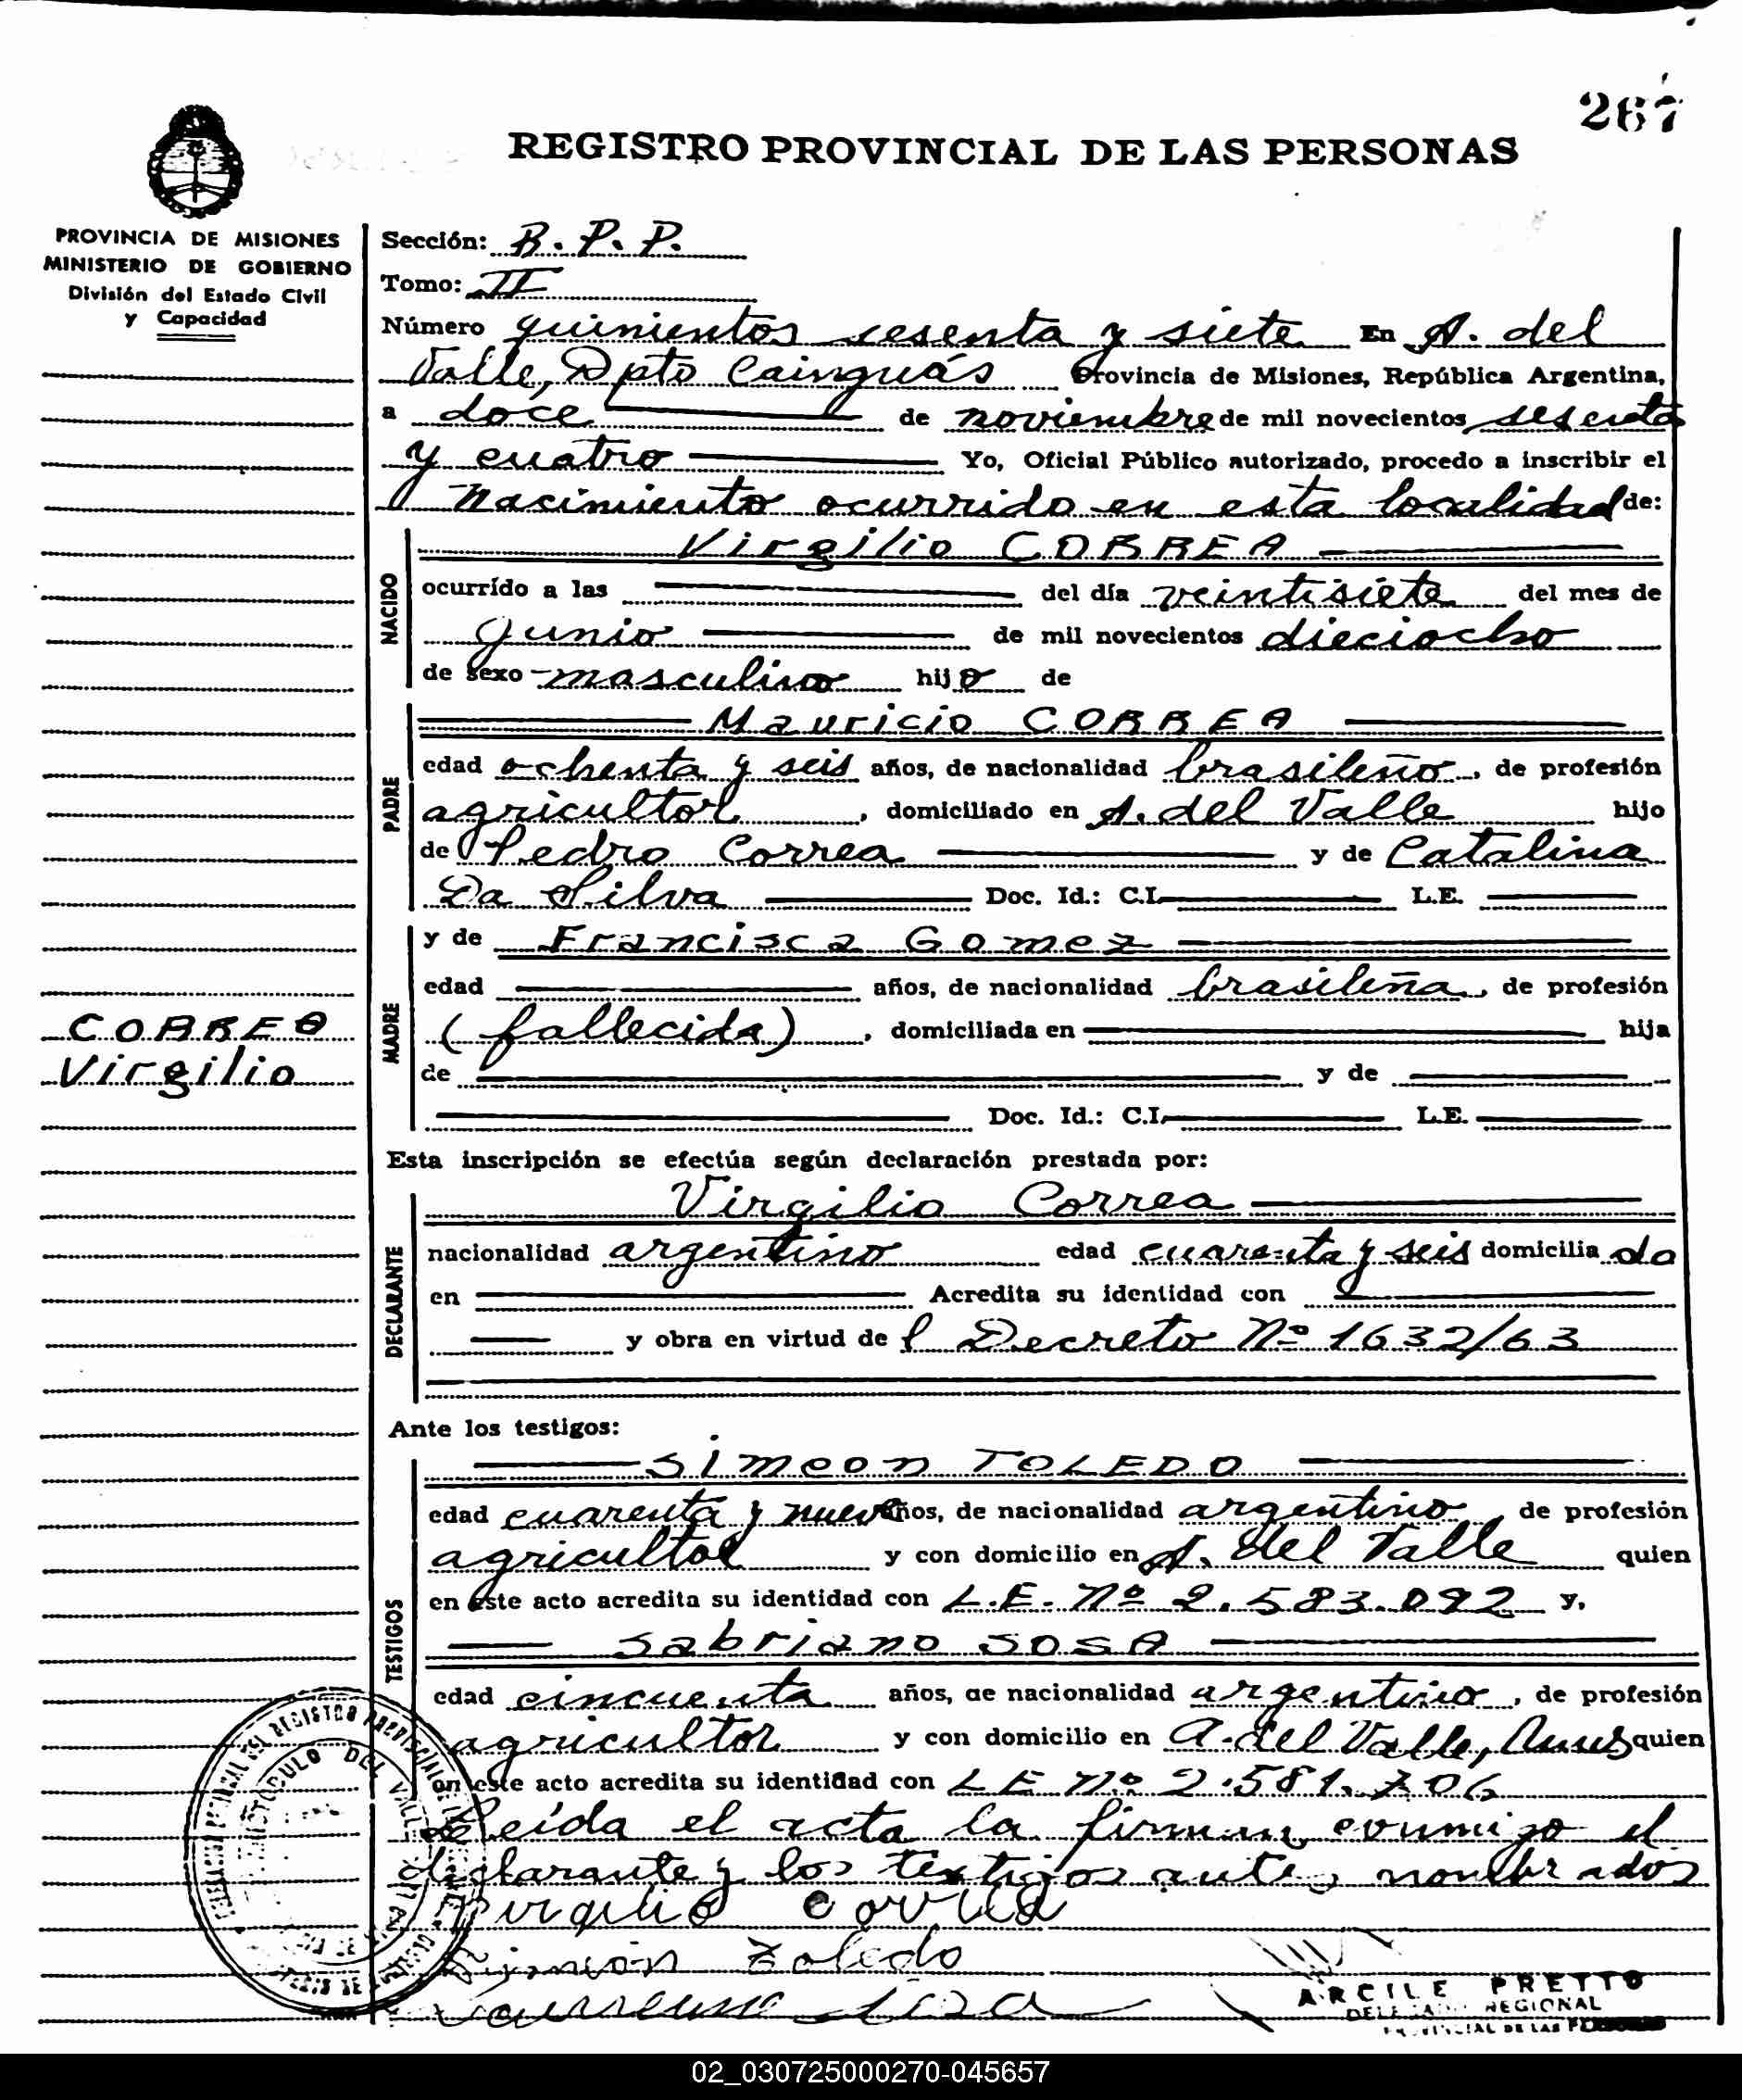 267
REGISTRO PROVINCIAL DE LAS PERSONAS
PROVINCIA DE MISIONES
MINISTERIO DE GOBIERNO
División del Estado Civil
y Capacidad
Sección: B. P. P.
Tomo: II
Número quinientos sesenta y siete En A. del
Valle, Dpto Cainguás Provincia de Misiones, República Argentina,
a doce de noviembre de mil novecientos sesenta
y cuatro Yo, Oficial Público autorizado, procedo a inscribir el
nacimiento ocurrido en esta localidad de:
NACIDO
Virgilio CORREA
ocurrído a las del día veintisiete del mes de
Junio de mil novecientos dieciocho
de sexo masculino hijo de
PADRE
Mauricio CORREA
edad ochenta y seis años, de nacionalidad brasileño, de profesión
agricultor, domiciliado en A. del Valle hijo
de Pedro Correa y de Catalina
Da Silva Doc. Id.: C.I. L.E.
MADRE
y de Francisca Gomez
edad años, de nacionalidad brasileña, de profesión
(fallecida), domiciliada en hija
de y de
Doc. Id.: C.I. L.E.
CORREA
Virgilio
Esta inscripción se efectúa según declaración prestada por:
DECLARANTE
Virgilio Correa
nacionalidad argentino edad cuarenta y seis domicilia do
en Acredita su identidad con
y obra en virtud de l Decreto Nº 1632/63
Ante los testigos:
TESTIGOS
Simeon TOLEDO
edad cuarenta y nueve años, de nacionalidad argentino, de profesión
agricultor y con domicilio en A. del Valle quien
en este acto acredita su identidad con L.E. Nº 2.583.092 y,
Sabriano SOSA
edad cincuenta años, de nacionalidad argentino, de profesión
agricultor y con domicilio en A. del Valle, quien
en este acto acredita su identidad con L E Nº 2.581.706
Leída el acta la firman conmigo el
declarante y los testigos antes nombrados
Virgilio Correa
Simion Toledo
Sosa
ARCILE PRETTO
DELEGADO REGIONAL
PROVINCIAL DE LAS PERSONAS
02_030725000270-045657